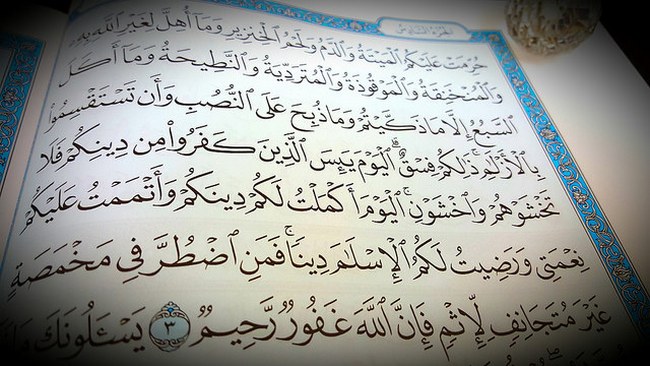 الجزء السادس
حُرِّمَتْ عَلَيْكُمُ ٱلْمَيْتَةُ وَٱلدَّمُ وَلَحْمُ ٱلْخِنزِيرِ وَمَآ أُهِلَّ لِغَيْرِ ٱللَّهِ بِهِۦ
وَٱلْمُنْخَنِقَةُ وَٱلْمَوْقُوذَةُ وَٱلْمُتَرَدِّيَةُ وَٱلنَّطِيحَةُ وَمَآ أَكَلَ
ٱلسَّبُعُ إِلَّا مَا ذَكَّيْتُمْ وَمَا ذُبِحَ عَلَى ٱلنُّصُبِ وَأَن تَسْتَقْسِمُوا۟
بِٱلْأَزْلَـٰمِ ذَٰلِكُمْ فِسْقٌ ۗ ٱلْيَوْمَ يَئِسَ ٱلَّذِينَ كَفَرُوا۟ مِن دِينِكُمْ فَلَا
تَخْشَوْهُمْ وَٱخْشَوْنِ ۚ ٱلْيَوْمَ أَكْمَلْتُ لَكُمْ دِينَكُمْ وَأَتْمَمْتُ عَلَيْكُمْ
نِعْمَتِى وَرَضِيتُ لَكُمُ ٱلْإِسْلَـٰمَ دِينًا ۚ فَمَنِ ٱضْطُرَّ فِى مَخْمَصَةٍ
غَيْرَ مُتَجَانِفٍ لِّإِثْمٍ فَإِنَّ ٱللَّهَ غَفُورٌ رَّحِيمٌ ٣ يَسْـَٔلُونَكَ